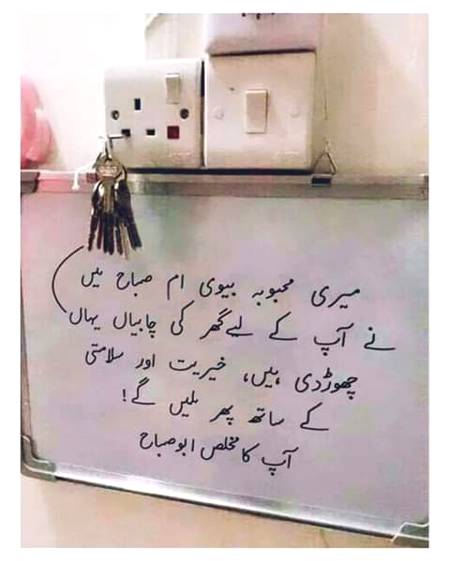 میری محبوبہ بیوی ام صباح میں
نے آپ کے لیے گھر کی چابیاں یہاں
چھوڑدی ہیں، خیریت اور سلامتی
کے ساتھ پھر ملیں گے!
آپ کا مخلص ابو صباح